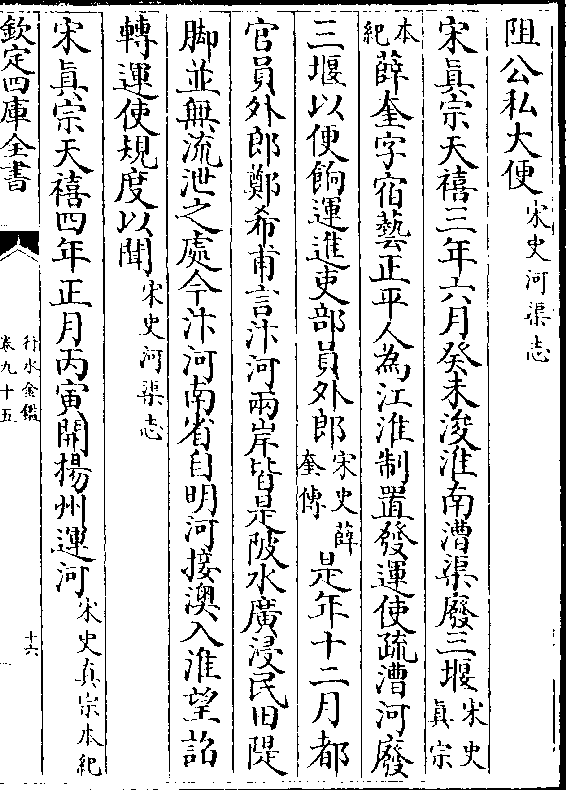 阻公私大便宋史河渠志
宋真宗天禧三年六月癸未浚淮南漕渠廢三堰宋史真宗
本紀薛奎字宿藝正平人為江淮制置發運使疏漕河廢
三堰以便餉運進吏部員外郎宋史薛奎傳是年十二月都
官員外郎鄭希甫言汴河兩岸皆是陂水廣浸民田隄
脚並無流泄之處今汴河南省自明河接澳入淮望詔
轉運使規度以聞宋史河渠志
宋真宗天禧四年正月丙寅開揚州運河宋史真宗本紀
欽定四庫全書
行水金鑑
卷九十五
十六